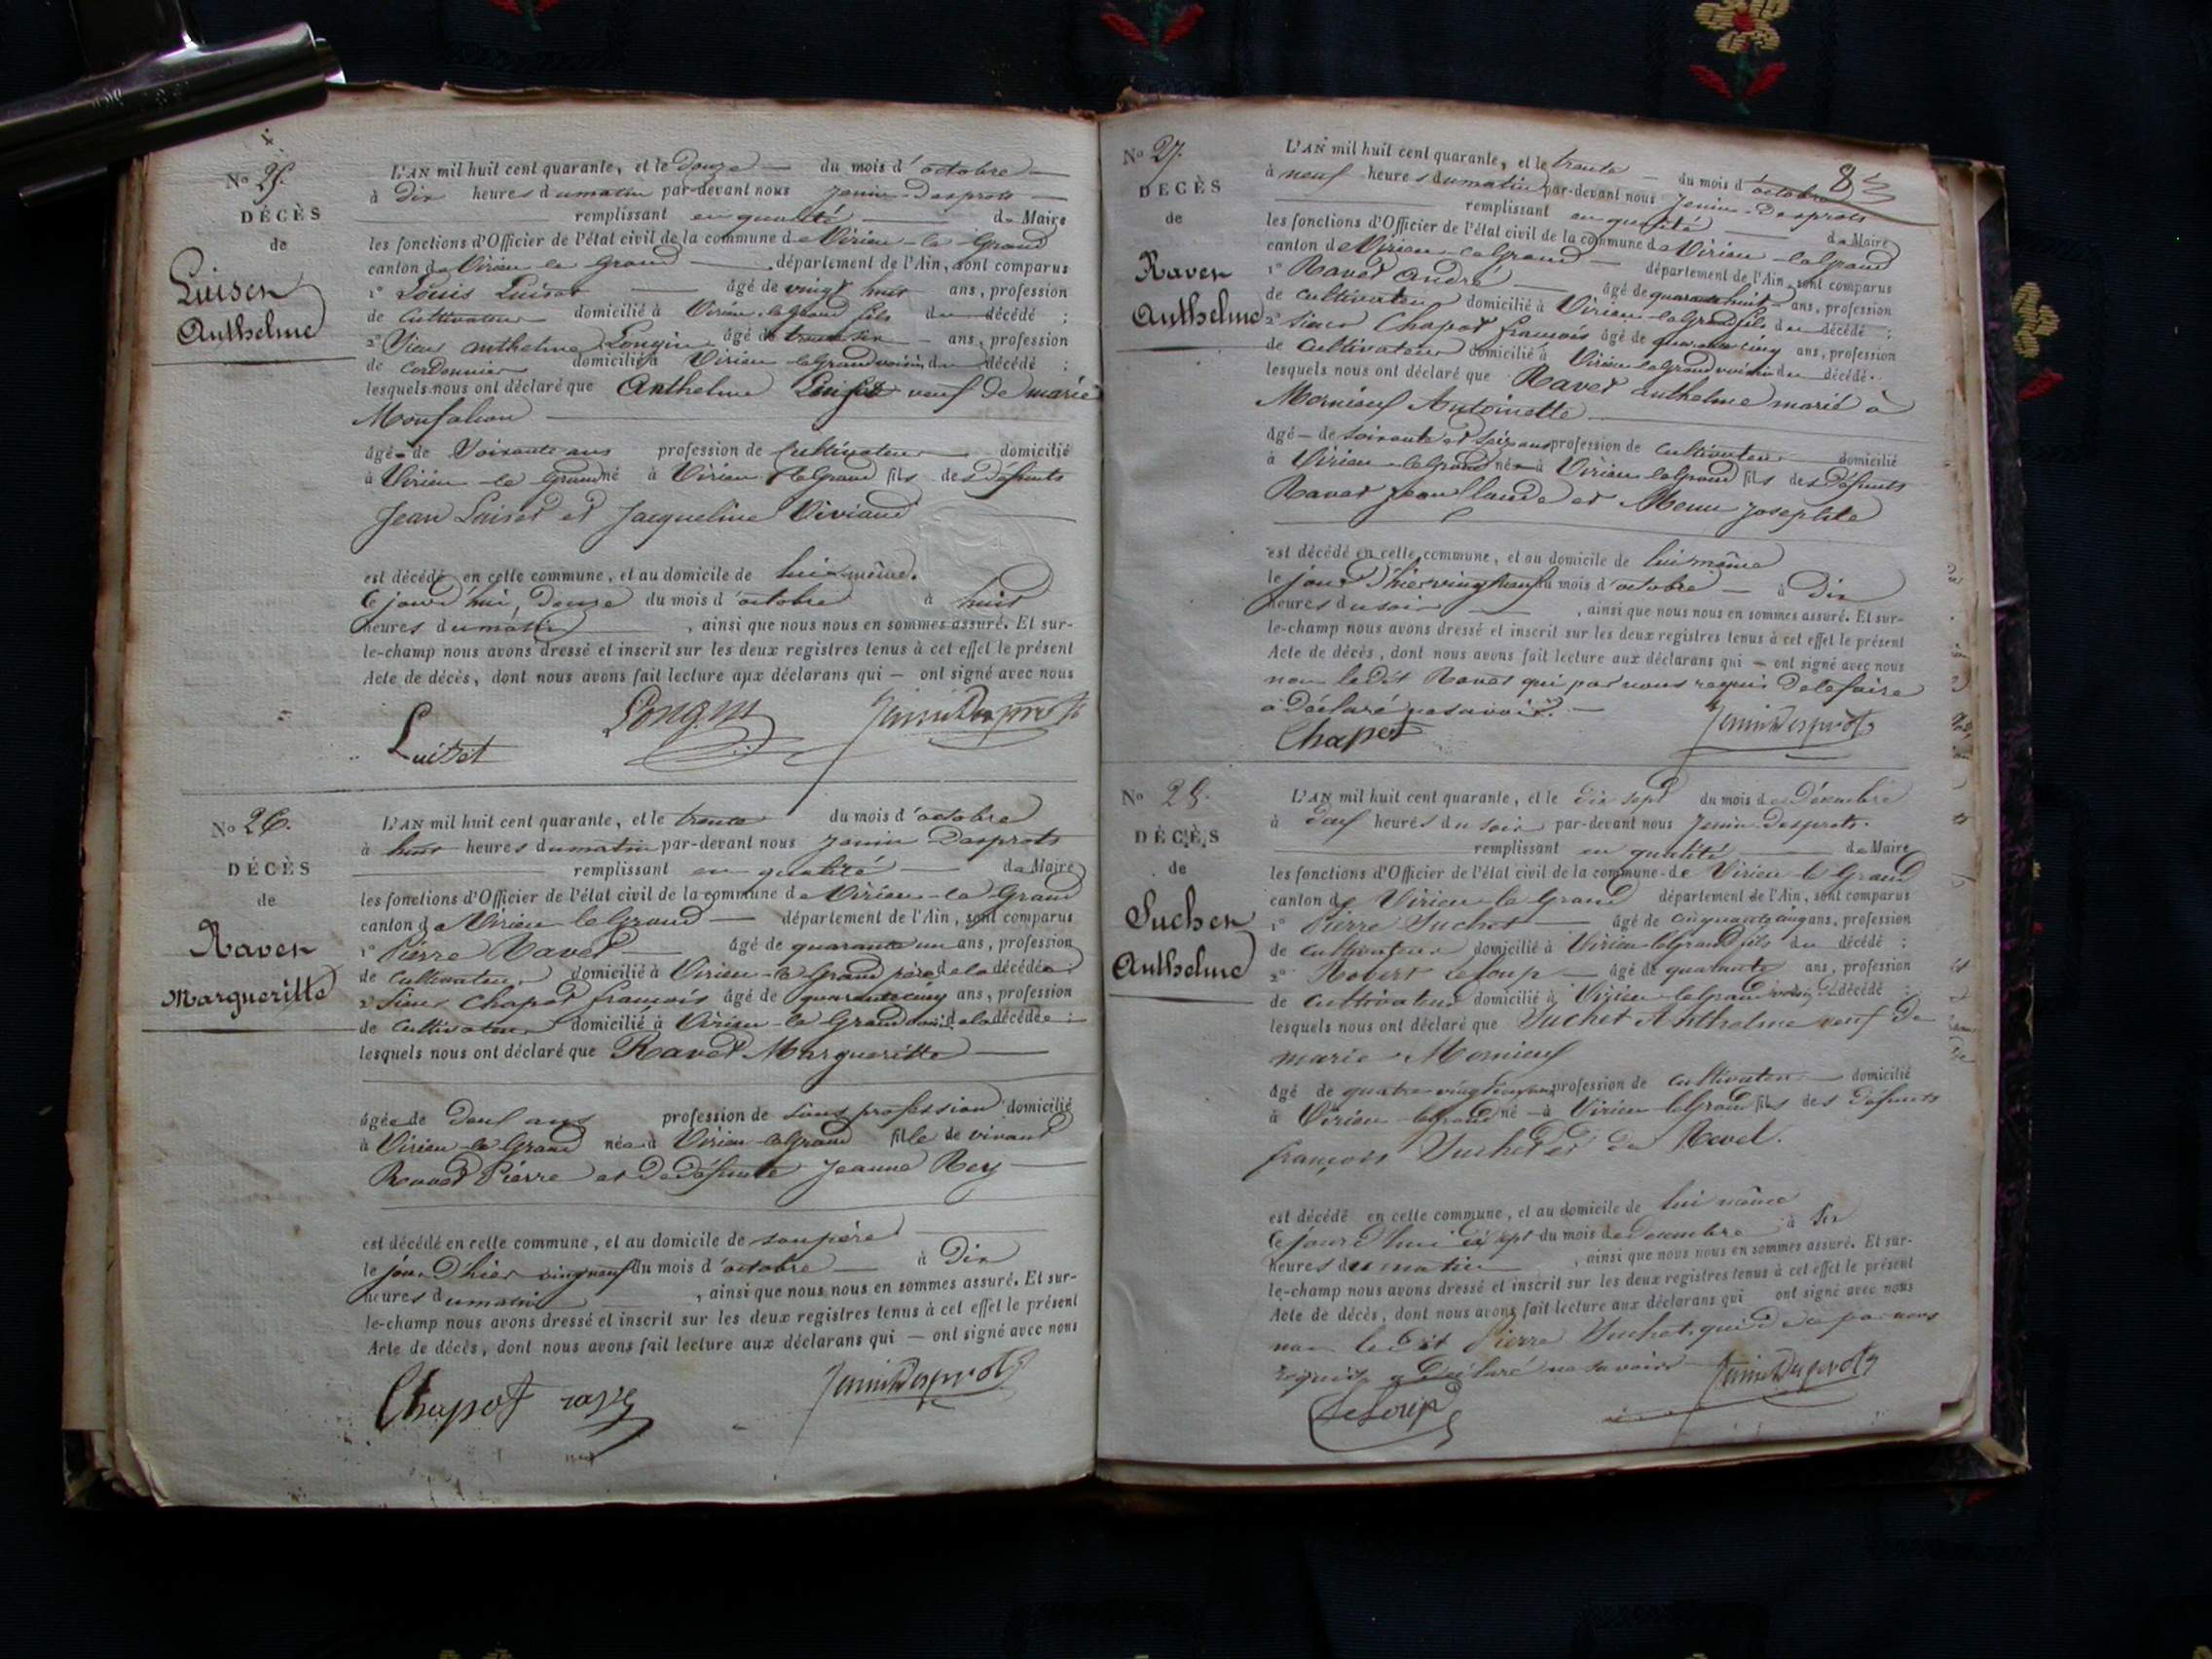 No 25.
DÉCÈS
de
Luiset
Anthelme
L'AN mil huit cent quarante, et le douze du mois d'octobre
à dix heures du matin par-devant nous Jenin-Desprots
remplissant en qualité de Maire
les fonctions d'Officier de l'état civil de la commune de Virieu-le-Grand
canton de Virieu le Grand département de l'Ain, sont comparus
1° Louis Luiset âgé de vingt huit ans, profession
de Cultivateur domicilié à Virieu-le-Grand fils du décédé ;
2° Sieur Anthelme Longin âgé de trente six ans, profession
de Cordonnier domicilié à Virieu-le-Grand voisin du décédé ;
lesquels nous ont déclaré que Anthelme Luiset veuf de marie
Monfalcon
âgé de Soixante ans profession de Cultivateur domicilié
à Virieu-le-Grand né à Virieu-le-Grand fils des défunts
Jean Luiset et Jacqueline Viviand
est décédé en cette commune, et au domicile de lui-même.
Ce jourd'hui, douze du mois d'octobre à huit
heures du matin, ainsi que nous nous en sommes assuré. Et sur-
le-champ nous avons dressé et inscrit sur les deux registres tenus à cet effet le présent
Acte de décès, dont nous avons fait lecture aux déclarans qui ont signé avec nous
Luiset Longin Jenin Desprots
No 26.
DÉCÈS
de
Ravet
Margueritte
L'AN mil huit cent quarante, et le trente du mois d'octobre
à huit heures du matin par-devant nous Jenin Desprots
remplissant en qualité de Maire
les fonctions d'Officier de l'état civil de la commune de Virieu-le-Grand
canton de Virieu le Grand département de l'Ain, sont comparus
1° Pierre Ravet âgé de quarante un ans, profession
de Cultivateur domicilié à Virieu-le-Grand père de la décédée ;
2° Sieur Chapot françois âgé de quarante cinq ans, profession
de Cultivateur domicilié à Virieu-le-Grand voisin de la décédée ;
lesquels nous ont déclaré que Ravet Margueritte
âgée de Deux ans profession de Sans profession domicilié
à Virieu-le-Grand née à Virieu-le-Grand fille de vivant
Ravet Pierre et de défunte Jeanne Rey
est décédé en cette commune, et au domicile de son père
le jour d'hier vingt neuf du mois d'octobre à Dix
heures du matin, ainsi que nous nous en sommes assuré. Et sur-
le-champ nous avons dressé et inscrit sur les deux registres tenus à cet effet le présent
Acte de décès, dont nous avons fait lecture aux déclarans qui ont signé avec nous
Chapot Jenin Desprots
8
No 27.
DÉCÈS
de
Ravet
Anthelme
L'AN mil huit cent quarante, et le trente du mois d'octobre
à neuf heures du matin par-devant nous Jenin-Desprots
remplissant en qualité de Maire
les fonctions d'Officier de l'état civil de la commune de Virieu-le-Grand
canton de Virieu-le-Grand département de l'Ain, sont comparus
1° Ravet André âgé de quarante huit ans, profession
de Cultivateur domicilié à Virieu-le-Grand fils du décédé ;
2° Sieur Chapot françois âgé de quarante cinq ans, profession
de Cultivateur domicilié à Virieu le Grand voisin du décédé.
lesquels nous ont déclaré que Ravet Anthelme marié à
Mornieux Antoinette
âgé de soixante et seize ans profession de Cultivateur domicilié
à Virieu-le-Grand né à Virieu-le-Grand fils des défunts
Ravet Jean Claude et Josephte
est décédé en cette commune, et au domicile de lui même
le jour d'hier vingt neuf du mois d'octobre à Dix
heures du soir, ainsi que nous nous en sommes assuré. Et sur-
le-champ nous avons dressé et inscrit sur les deux registres tenus à cet effet le présent
Acte de décès, dont nous avons fait lecture aux déclarans qui ont signé avec nous
non le dit Ravet qui par nous requis de le faire
a déclaré ne savoir.
Chapot Jenin Desprots
No 28.
DÉCÈS
de
Suchet
Anthelme
L'AN mil huit cent quarante, et le dix sept du mois de Décembre
à deux heures du soir par-devant nous Jenin-Desprots.
remplissant en qualité de Maire
les fonctions d'Officier de l'état civil de la commune de Virieu-le-Grand
canton de Virieu-le-Grand département de l'Ain, sont comparus
1° Pierre Suchet âgé de cinquante cinq ans, profession
de Cultivateur domicilié à Virieu-le-Grand fils du décédé ;
2° Robert Leloup âgé de quarante ans, profession
de Cultivateur domicilié à Virieu-le-Grand voisin du décédé ;
lesquels nous ont déclaré que Suchet Anthelme veuf de
marie Mornieux
âgé de quatre-vingt ans profession de Cultivateur domicilié
à Virieu-le-Grand né à Virieu-le-Grand fils des défunts
françois Suchet et de Revel.
est décédé en cette commune, et au domicile de lui même
Ce jourd'hui dix sept du mois de decembre à Six
heures du matin, ainsi que nous nous en sommes assuré. Et sur-
le-champ nous avons dressé et inscrit sur les deux registres tenus à cet effet le présent
Acte de décès, dont nous avons fait lecture aux déclarans qui ont signé avec nous
non le dit Pierre Suchet, qui de ce par nous
requis a déclaré ne savoir
Leloup Jenin Desprots